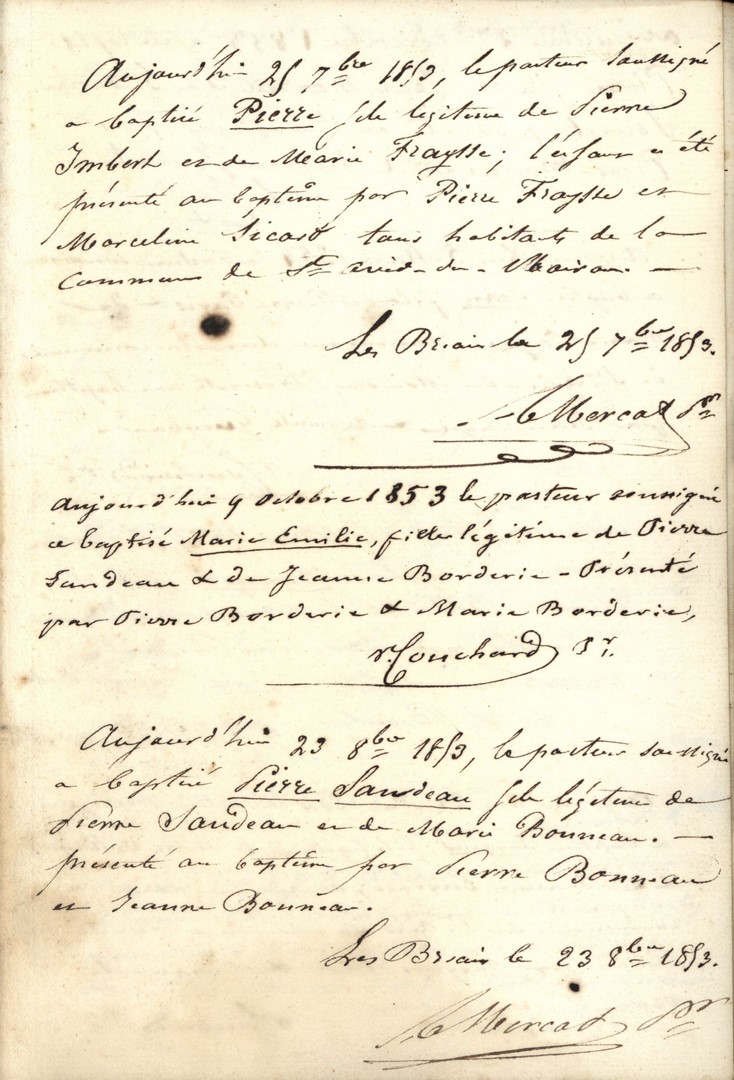 Aujourd'hui 25 7bre 1853, le pasteur soussigné
a baptisé Pierre fils légitime de Pierre
Imbert et de Marie Fraysse; l'enfant a été
présenté au baptême par Pierre Fraysse et
Marceline Sicard tous habitants de la
Commune de St avid-du-
Les Briais le 25 7bre 1853.
Mercat Pr
Aujourd'hui 9 Octobre 1853 le pasteur soussigné
a baptisé Marie Emilie, fille légitime de Pierre
Sandeau & de Jeanne Borderie - Présenté
par Pierre Borderie & Marie Borderie,
Couchard Pr.
Aujourd'hui 23 8bre 1853, le pasteur soussigné
a baptisé Pierre Sandeau fils légitime de
Pierre Sandeau et de Marie Bonneau. —
présenté au baptême par Pierre Bonneau
et Jeanne Bonneau.
Les Briais le 23 8bre 1853.
Mercat Pr